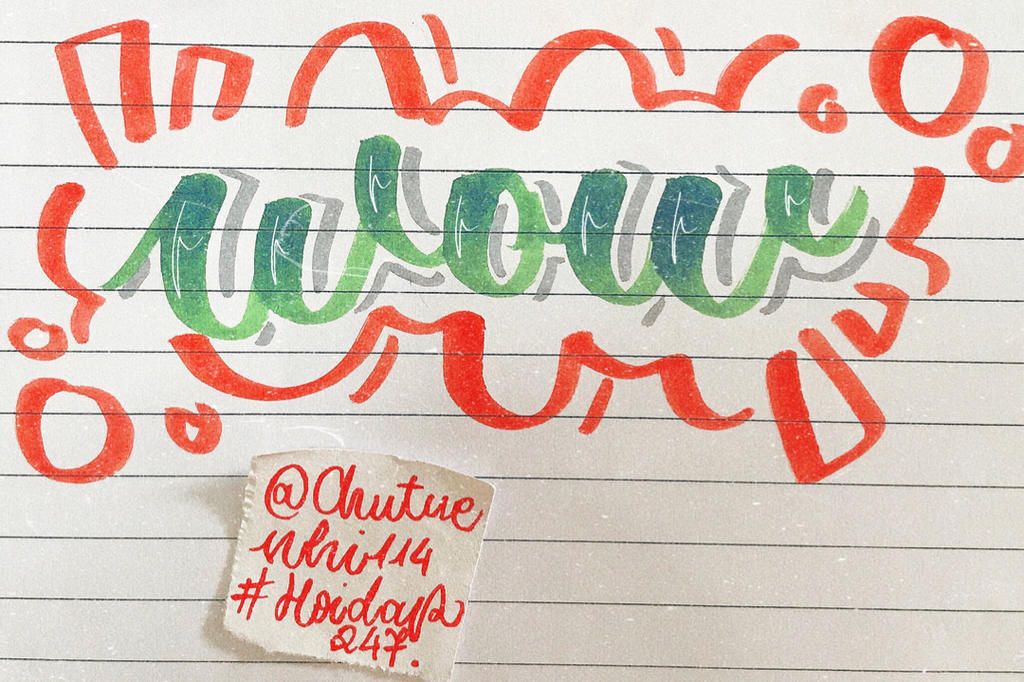 wow
@Chutue
nhi114
#Hoidap
247.